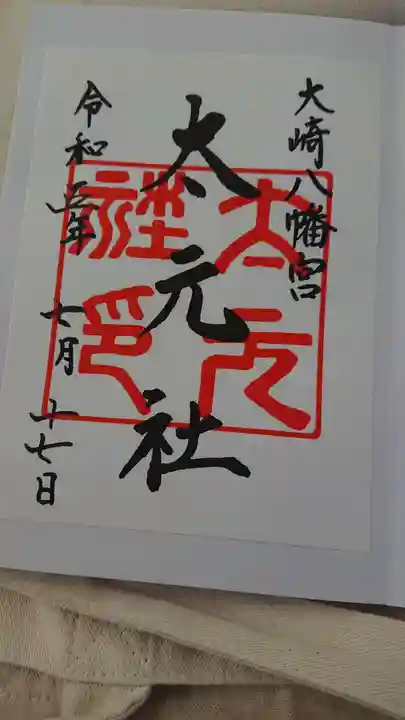 大崎八幡宮
太元社
太元社印
令和五年 七月 十七日